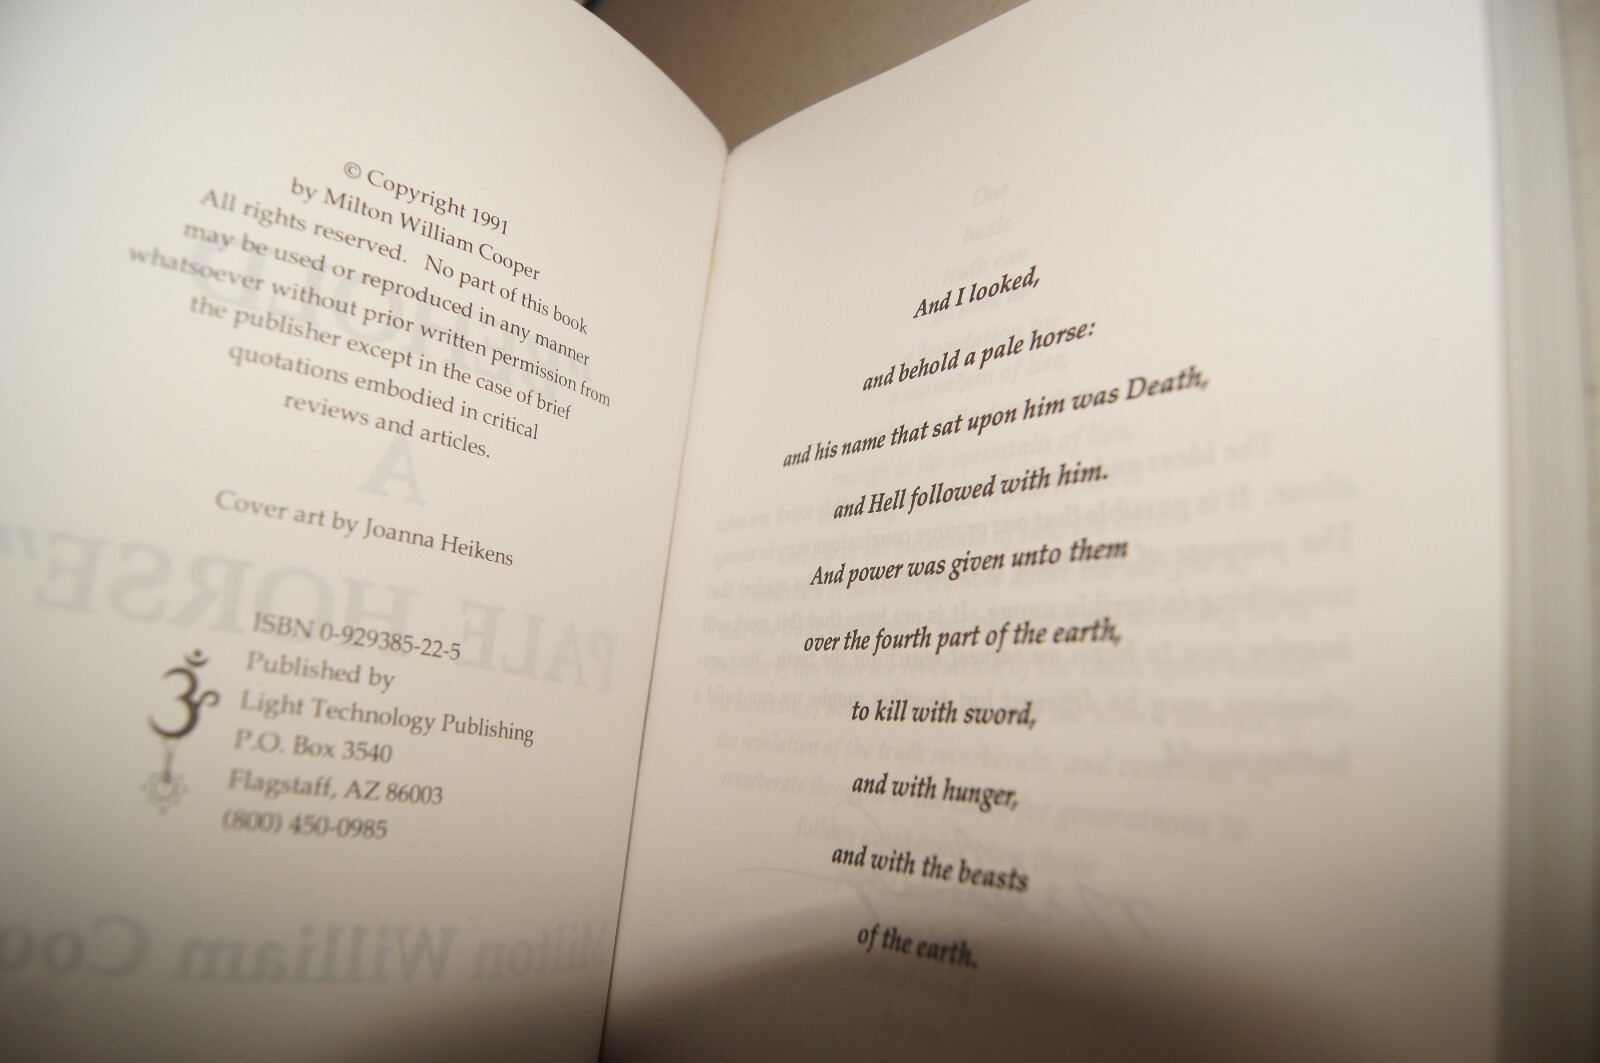 © Copyright 1991
by Milton William Cooper
All rights reserved. No part of this book
may be used or reproduced in any manner
whatsoever without prior written permission from
the publisher except in the case of brief
quotations embodied in critical
reviews and articles.
Cover art by Joanna Heikens
ISBN 0-929385-22-5
Published by
Light Technology Publishing
P.O. Box 3540
Flagstaff, AZ 86003
(800) 450-0985
And I looked,
and behold a pale horse:
and his name that sat upon him was Death,
and Hell followed with him.
And power was given unto them
over the fourth part of the earth,
to kill with sword,
and with hunger,
and with the beasts
of the earth.